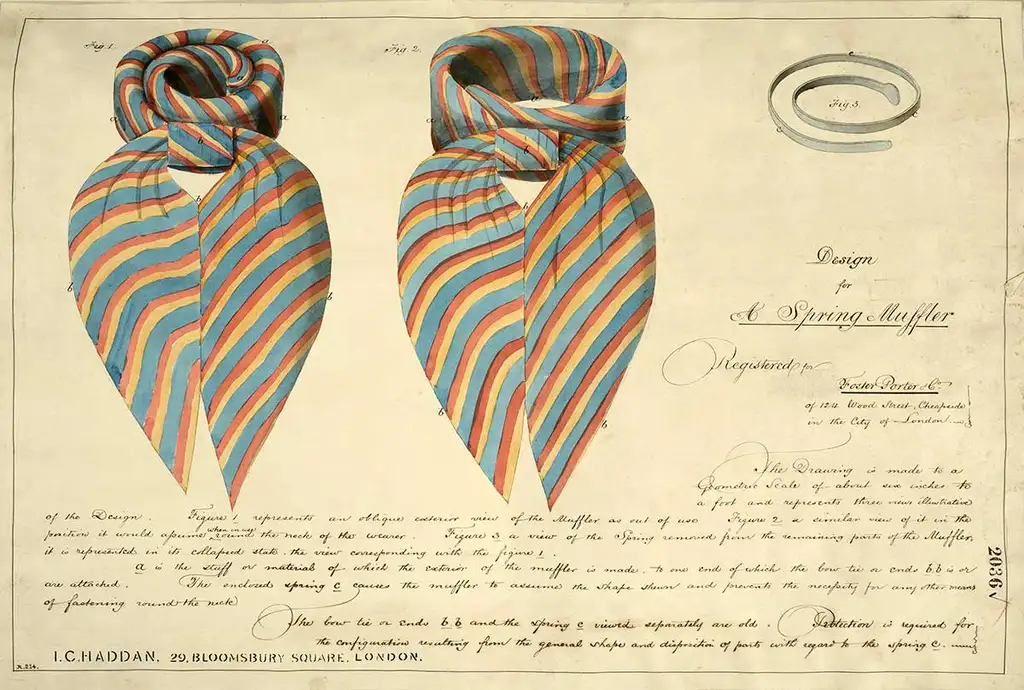 Fig. 1.
a
a
a
b
b
b
b
Fig. 2.
a
a
b
b
b
Fig 3.
c
c
c
Design
for
A Spring Muffler
Registered for
Foster Porter & Co
of 124 Wood Street, Cheapside
in the City of London.
The Drawing is made to a
Geometric Scale of about six inches to
a foot and represents three views illustrative
of the Design. Figure 1 represents an oblique exterior view of the Muffler as out of use Figure 2 a similar view of it in the
when in use
position it would assume round the neck of the wearer. Figure 3 a view of the Spring removed from the remaining parts of the Muffler,
it is represented in its collapsed state, the view corresponding with the figure 1.
a is the stuff or material of which the exterior of the muffler is made, to one end of which the bow tie or ends b.b is or
are attached. The enclosed spring c causes the muffler to assume the shape shewn and prevents the necessity for any other means
of fastening round the neck
The bow tie or ends b.b and the spring c viewed separately are old. Protection is required for
the configuration resulting from the general shape and disposition of parts with regard to the spring c.
I.C. HADDAN, 29, BLOOMSBURY SQUARE, LONDON.
2036